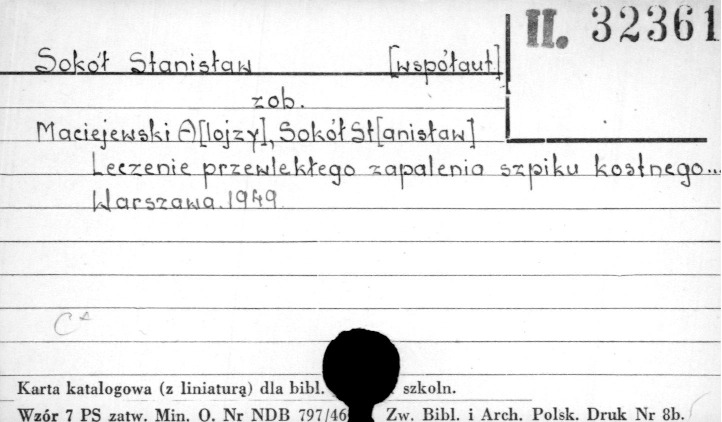 II. 32361
Sokół Stanisław [współaut]
zob.
Maciejewski A[lojzy], Sokół St[anisław]
Leczenie przewlekłego zapalenia szpiku kostnego...
Warszawa. 1949
Karta katalogowa (z liniaturą) dla bibl. szkoln.
Wzór 7 PS zatw. Min. O. Nr NDB 797/46 Zw. Bibl. i Arch. Polsk. Druk Nr 8b.